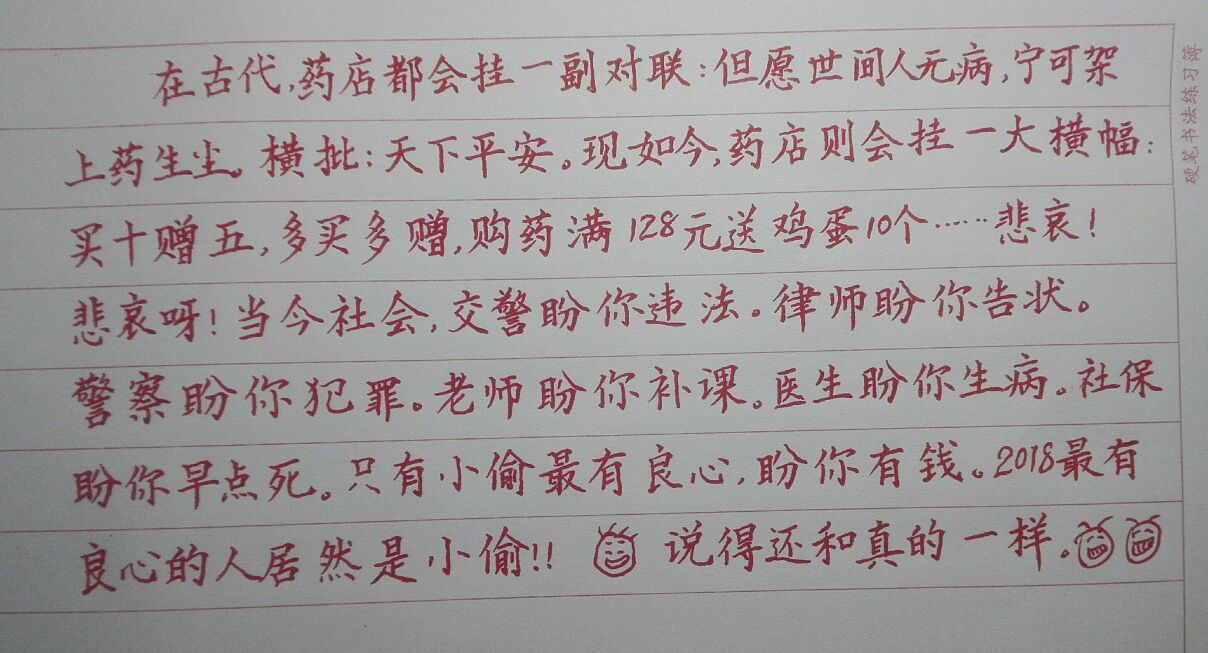 在古代,药店都会挂一副对联:但愿世间人无病,宁可架
上药生尘。横批:天下平安。现如今,药店则会挂一大横幅:
买十赠五,多买多赠,购药满128元送鸡蛋10个……悲哀!
悲哀呀!当今社会,交警盼你违法。律师盼你告状。
警察盼你犯罪。老师盼你补课。医生盼你生病。社保
盼你早点死。只有小偷最有良心,盼你有钱。2018最有
良心的人居然是小偷!! 说得还和真的一样。
硬笔书法练习簿